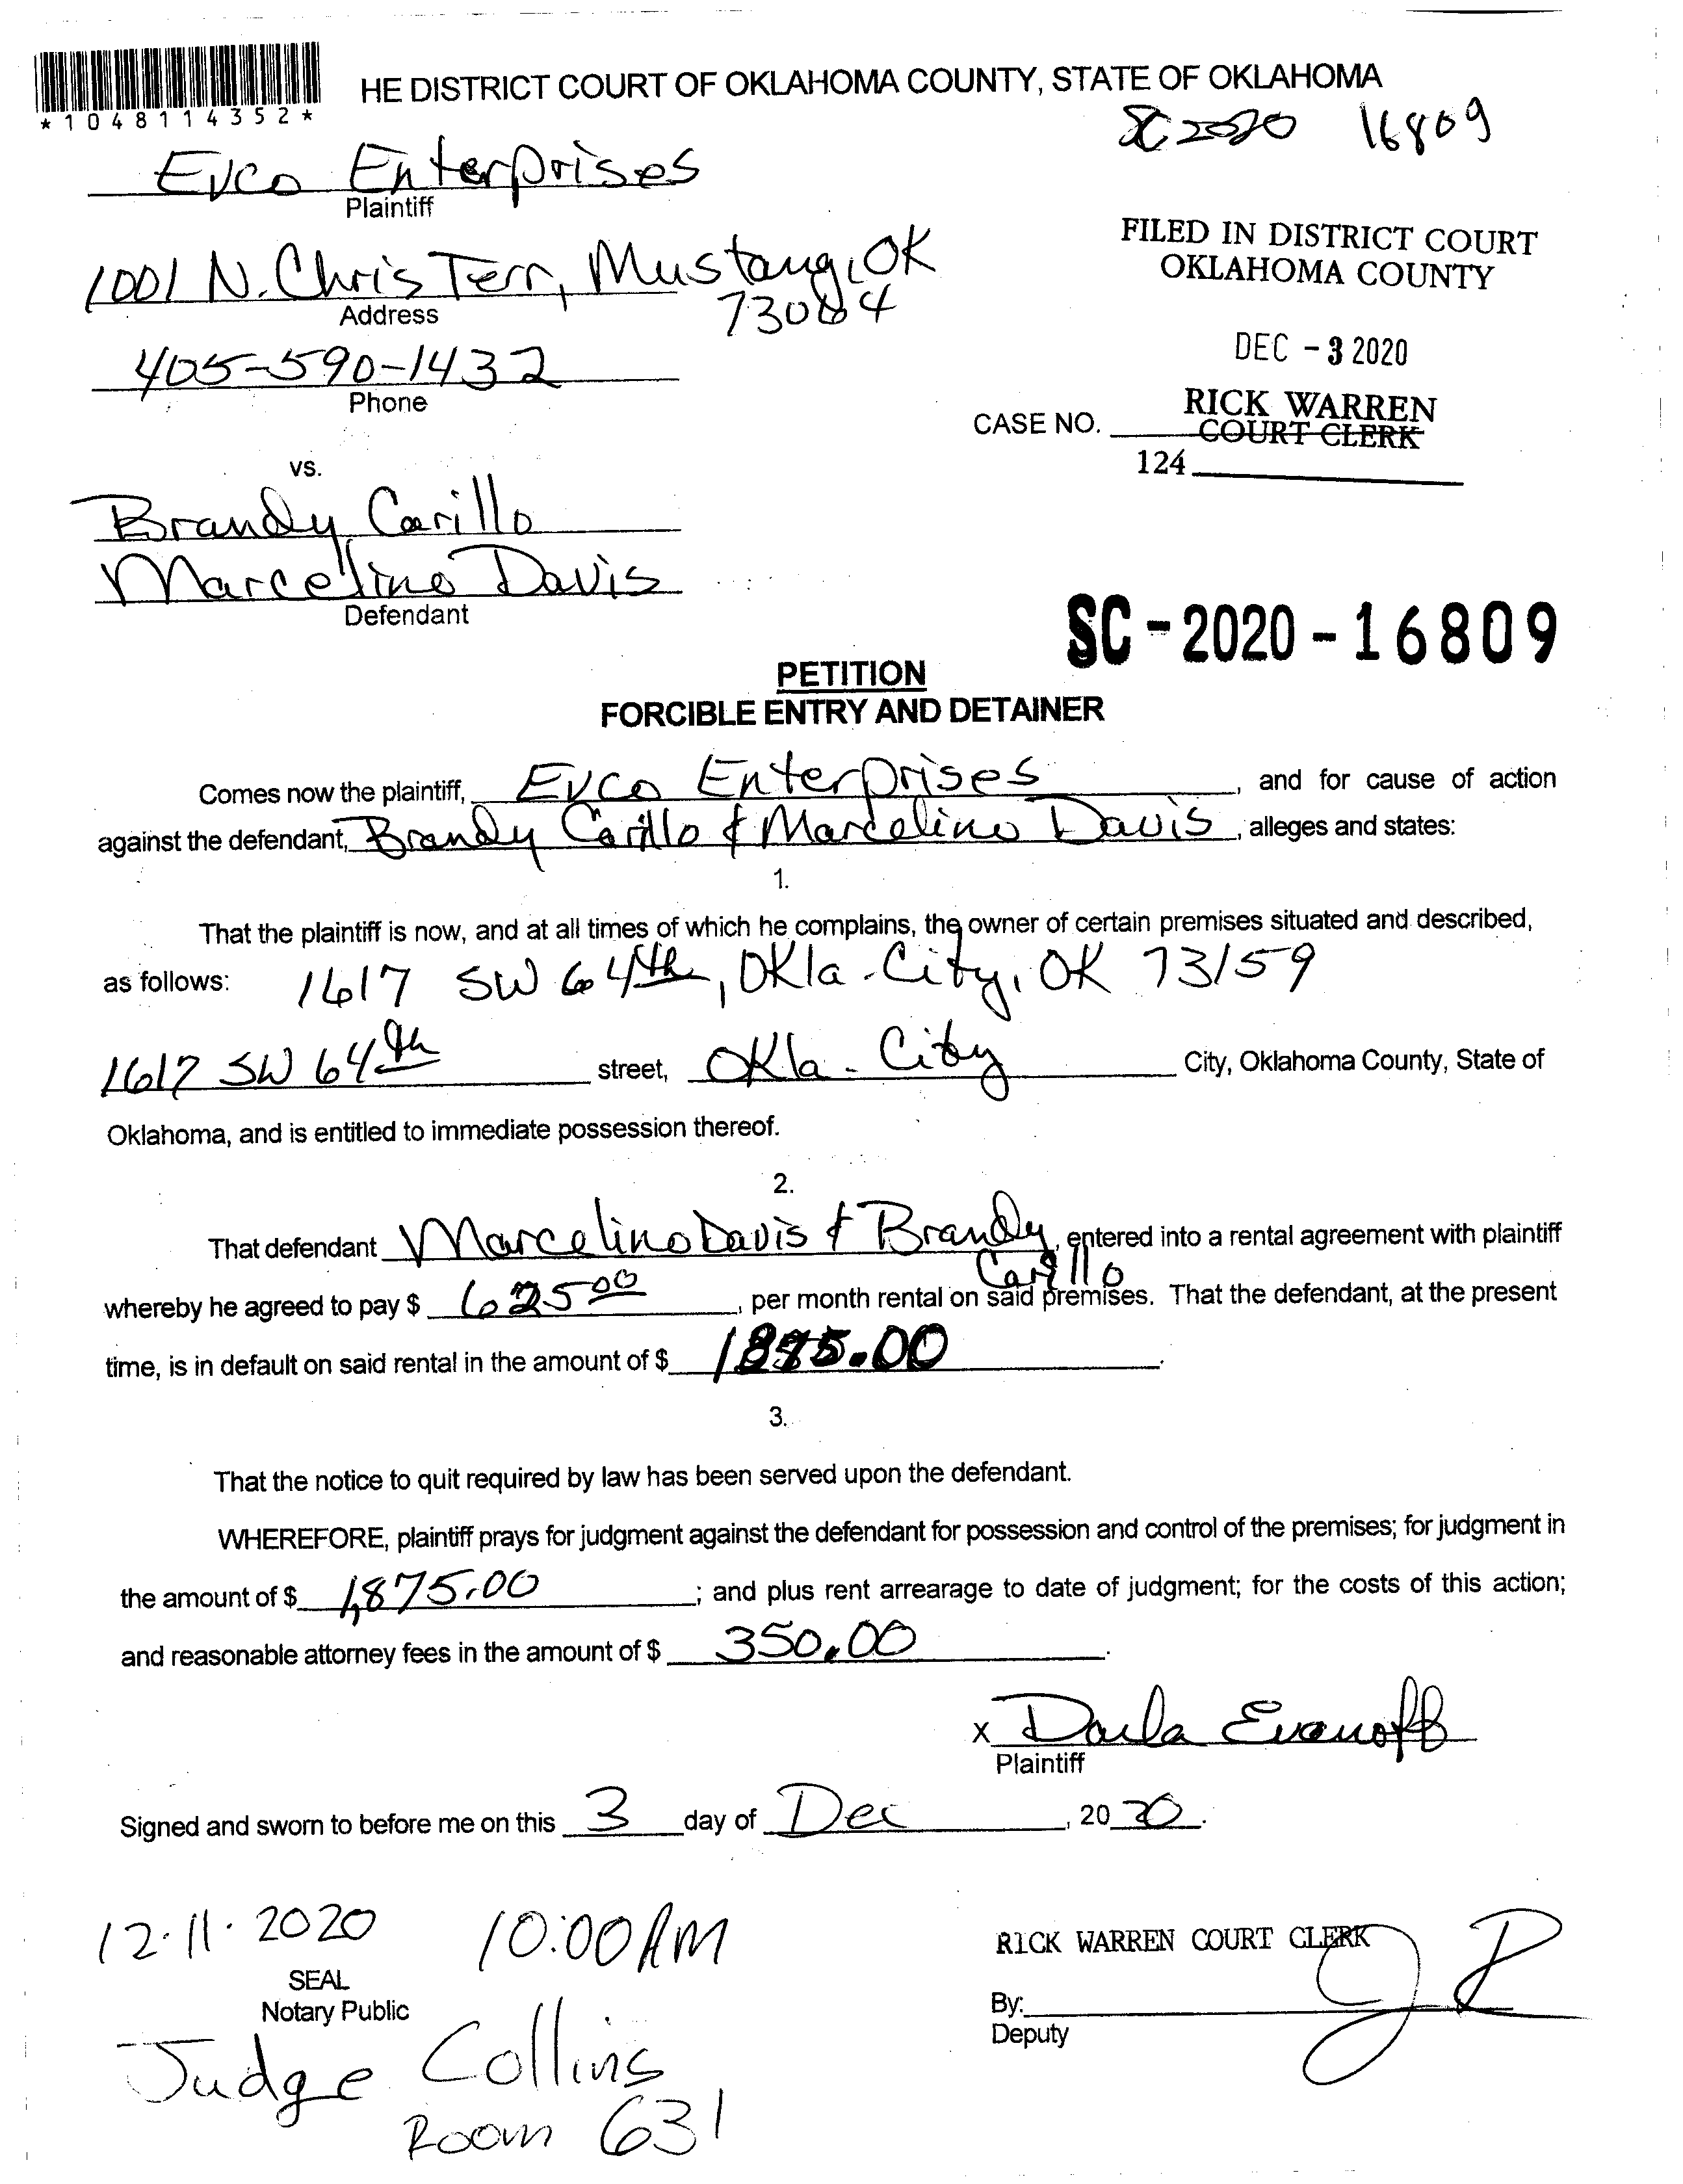 *1048114352*
HE DISTRICT COURT OF OKLAHOMA COUNTY, STATE OF OKLAHOMA
SC 2020 16809
Evco Enterprises
Plaintiff
1001 N. Chris Terr, Mustang, OK
73064
Address
405-590-1432
Phone
FILED IN DISTRICT COURT
OKLAHOMA COUNTY
DEC - 3 2020
RICK WARREN
COURT CLERK
CASE NO.
124
vs.
Brandy Carillo
Marcelino Davis
Defendant
SC - 2020 - 16809
PETITION
FORCIBLE ENTRY AND DETAINER
Comes now the plaintiff, Evco Enterprises, and for cause of action
against the defendant, Brandy Carillo & Marcelino Davis, alleges and states:
1.
That the plaintiff is now, and at all times of which he complains, the owner of certain premises situated and described,
as follows: 1617 SW 64th, Okla. City, OK 73159
1617 SW 64th street, Okla. City City, Oklahoma County, State of
Oklahoma, and is entitled to immediate possession thereof.
2.
That defendant Marcelino Davis & Brandy Carillo, entered into a rental agreement with plaintiff
whereby he agreed to pay $ 625.00, per month rental on said premises. That the defendant, at the present
time, is in default on said rental in the amount of $ 1875.00.
3.
That the notice to quit required by law has been served upon the defendant.
WHEREFORE, plaintiff prays for judgment against the defendant for possession and control of the premises; for judgment in
the amount of $ 1,875.00; and plus rent arrearage to date of judgment; for the costs of this action;
and reasonable attorney fees in the amount of $ 350.00.
x Darla Evanoff
Plaintiff
Signed and sworn to before me on this 3 day of Dec, 2020.
12.11.2020 10:00AM
SEAL
Notary Public
RICK WARREN COURT CLERK
By:
Deputy
Judge Collins
Room 631